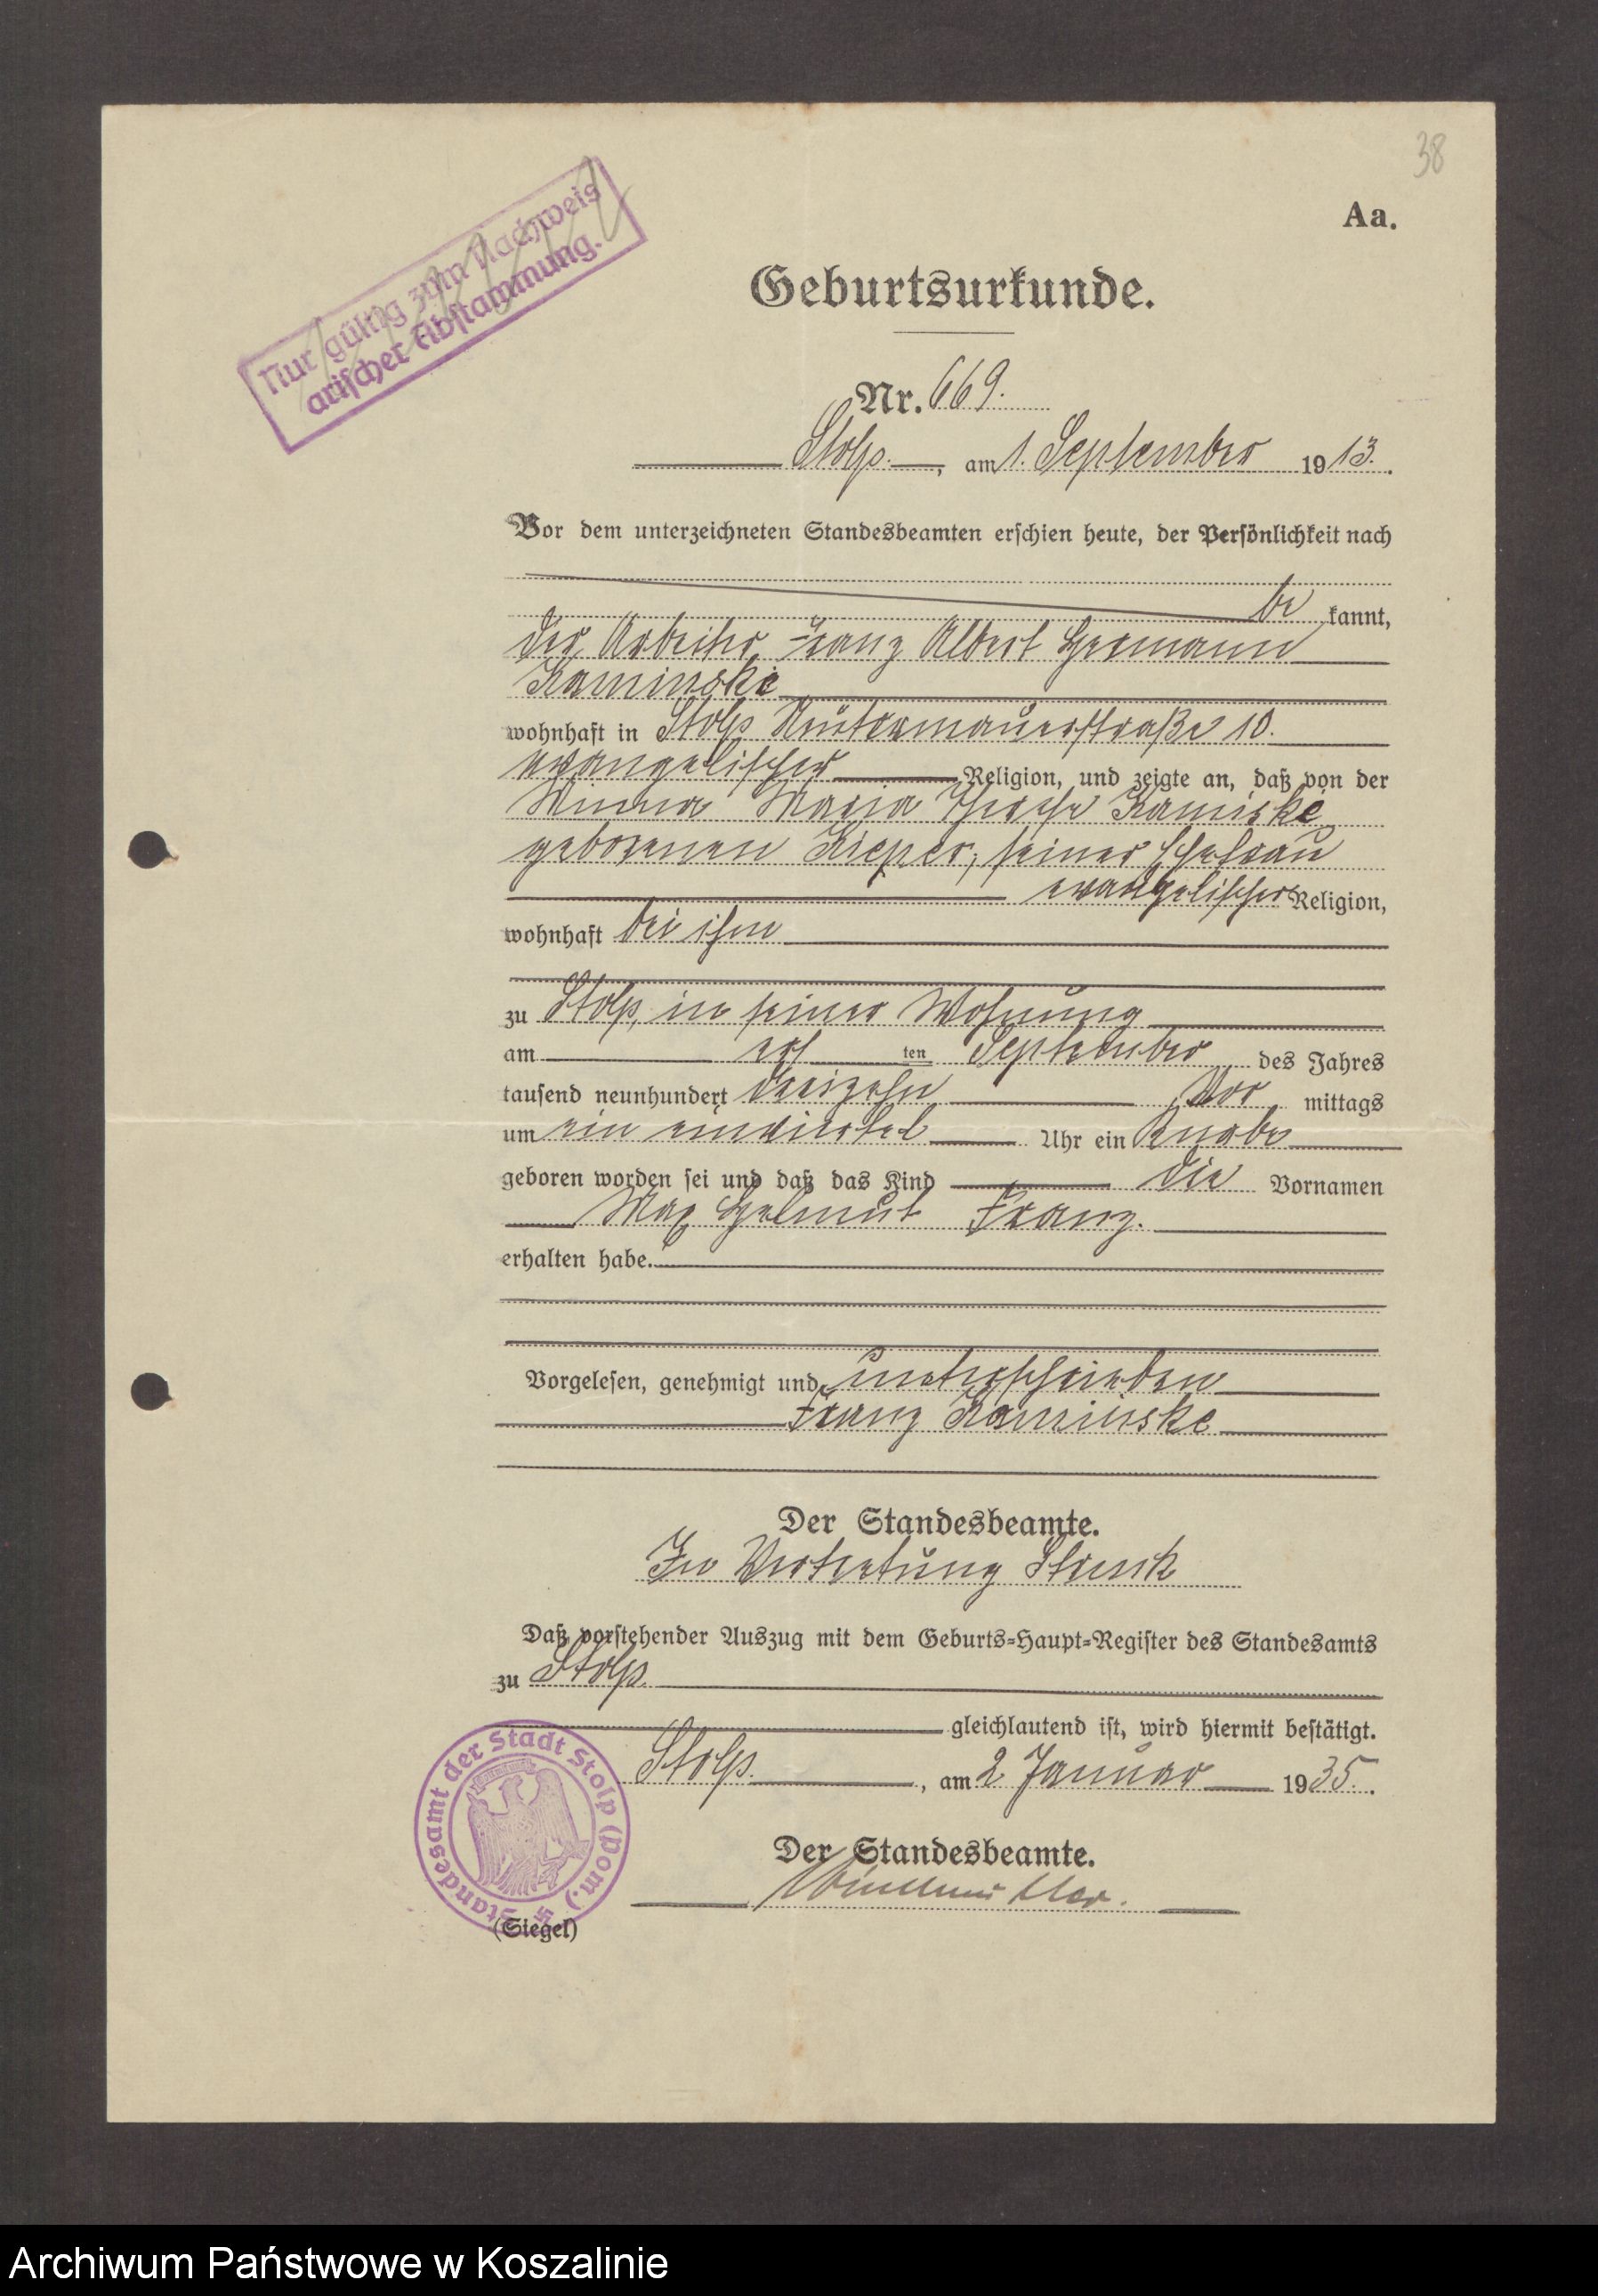 38
Aa.
Nur gültig zum Nachweis
arischer Abstammung.
Geburtsurkunde.
Nr. 669.
Stolp, am 1. September 1913.
Vor dem unterzeichneten Standesbeamten erschien heute, der Persönlichkeit nach
be kannt,
der Arbeiter Franz Albert Hermann
Kaminske
wohnhaft in Stolp 10.
evangelischer Religion, und zeigte an, daß von der
Minna Maria Therese Kaminske
geborenen Kieper, seiner Ehefrau
evangelischer Religion,
wohnhaft bei ihm
zu Stolp, in seiner Wohnung
am ers ten September des Jahres
tausend neunhundert dreizehn Vor mittags
um ein einviertel Uhr ein Knabe
geboren worden sei und daß das Kind die Vornamen
Max Helmut Franz.
erhalten habe.
Vorgelesen, genehmigt und unterschrieben
Franz Kaminske
Der Standesbeamte.
In Vertretung
Daß vorstehender Auszug mit dem Geburts-Haupt-Register des Standesamts
zu Stolp
gleichlautend ist, wird hiermit bestätigt.
Stolp, am 2 Januar 1935.
Der Standesbeamte.
Standesamt der Stadt Stolp (Pom.)
(Siegel)
Archiwum Państwowe w Koszalinie